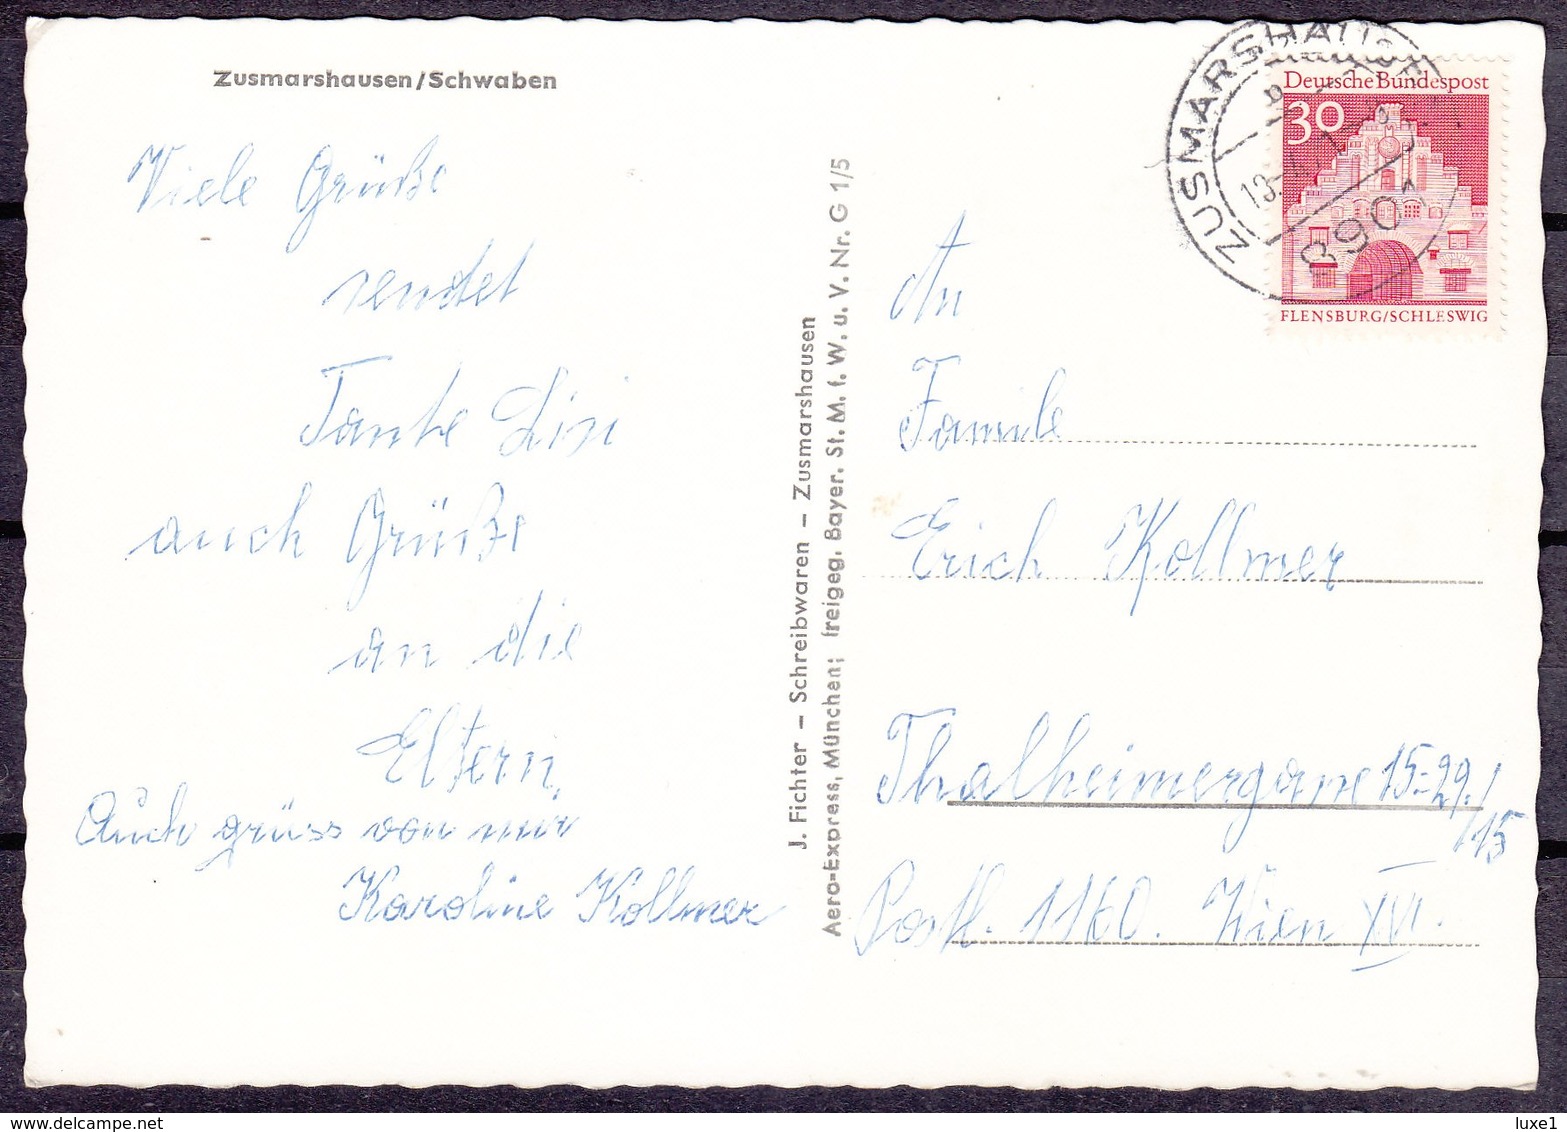 Zusmarshausen/Schwaben
Viele Grüße
sendet
Tante Lisi
auch Grüße
an die
Eltern.
Auch grüss von mir
Karoline Kollmer
J. Fichter – Schreibwaren – Zusmarshausen
Aero-Express, München; freigeg. Bayer. St. M. f. W. u. V. Nr. G 1/5
ZUSMARSHAUSEN
8901
Deutsche Bundespost
30
FLENSBURG/SCHLESWIG
An
Familie
Erich Kollmer
Thalheimergasse 15-29./
/15
Postl. 1160. Wien XVI.
delcampe.net
luxe1